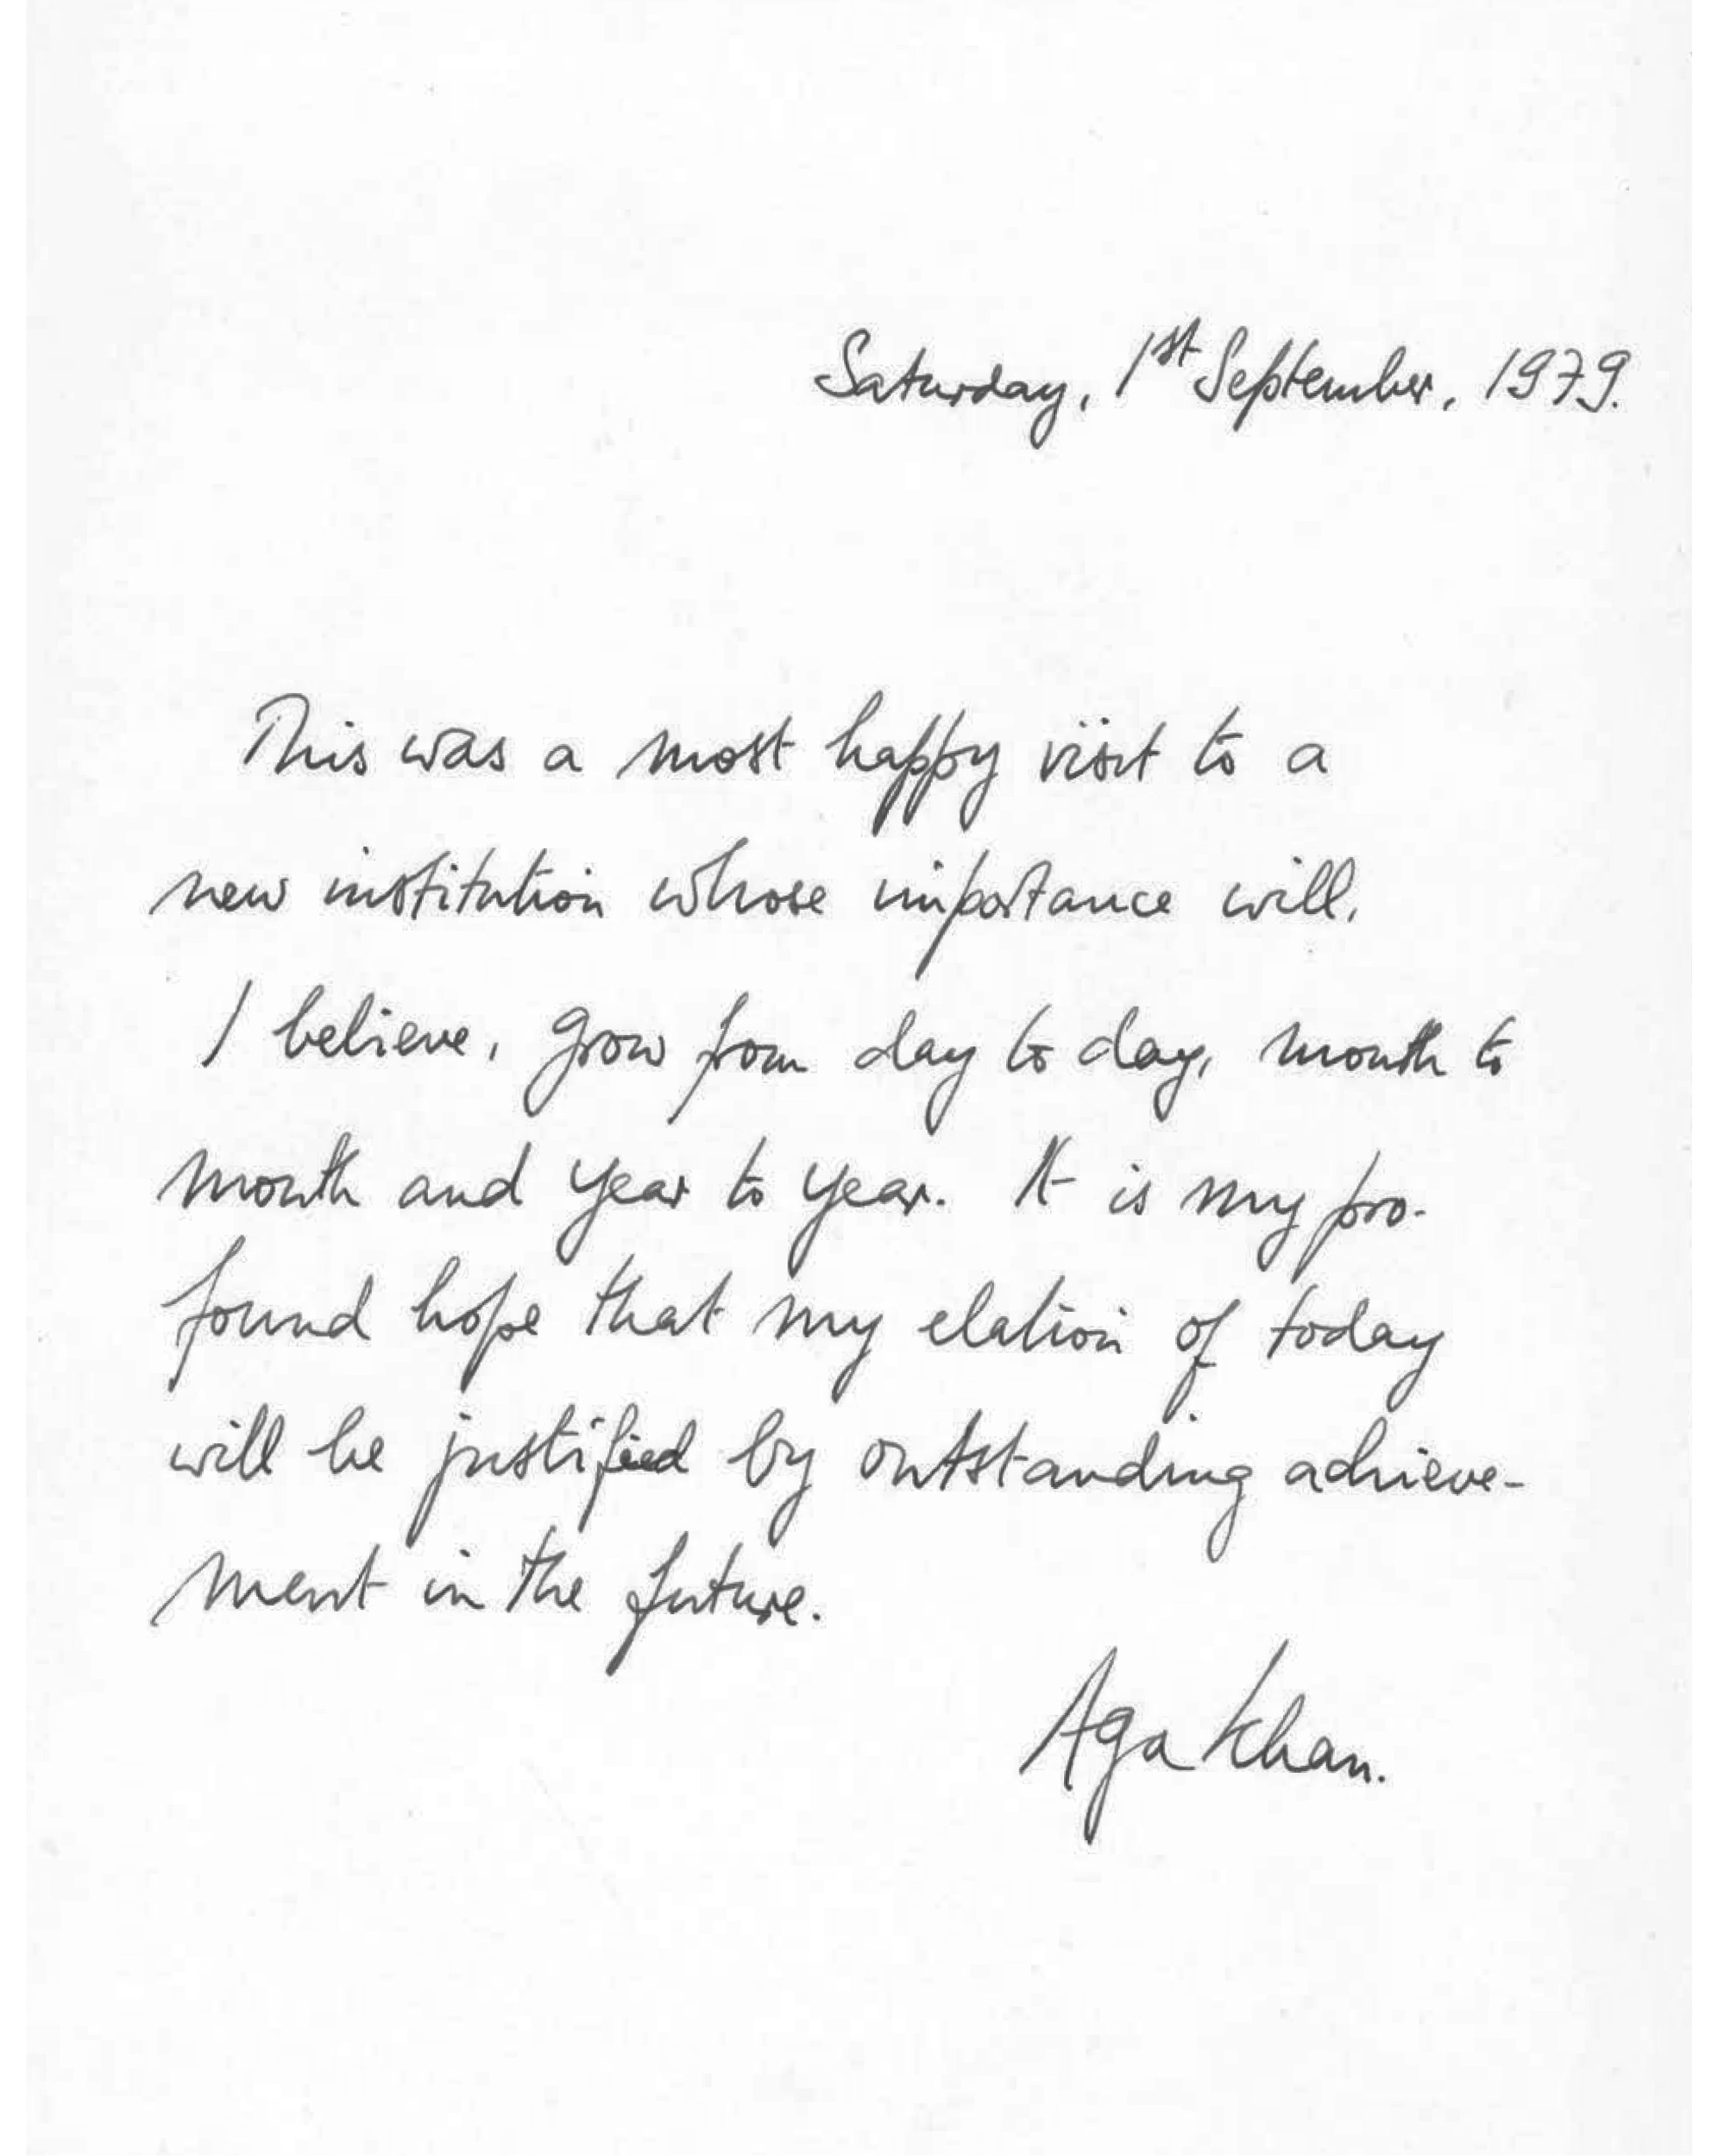 Saturday, 1st September, 1979.
This was a most happy visit to a
new institution whose importance will,
I believe, grow from day to day, month to
month and year to year. It is my pro-
found hope that my elation of today
will be justified by outstanding achieve-
ment in the future.
Aga Khan.